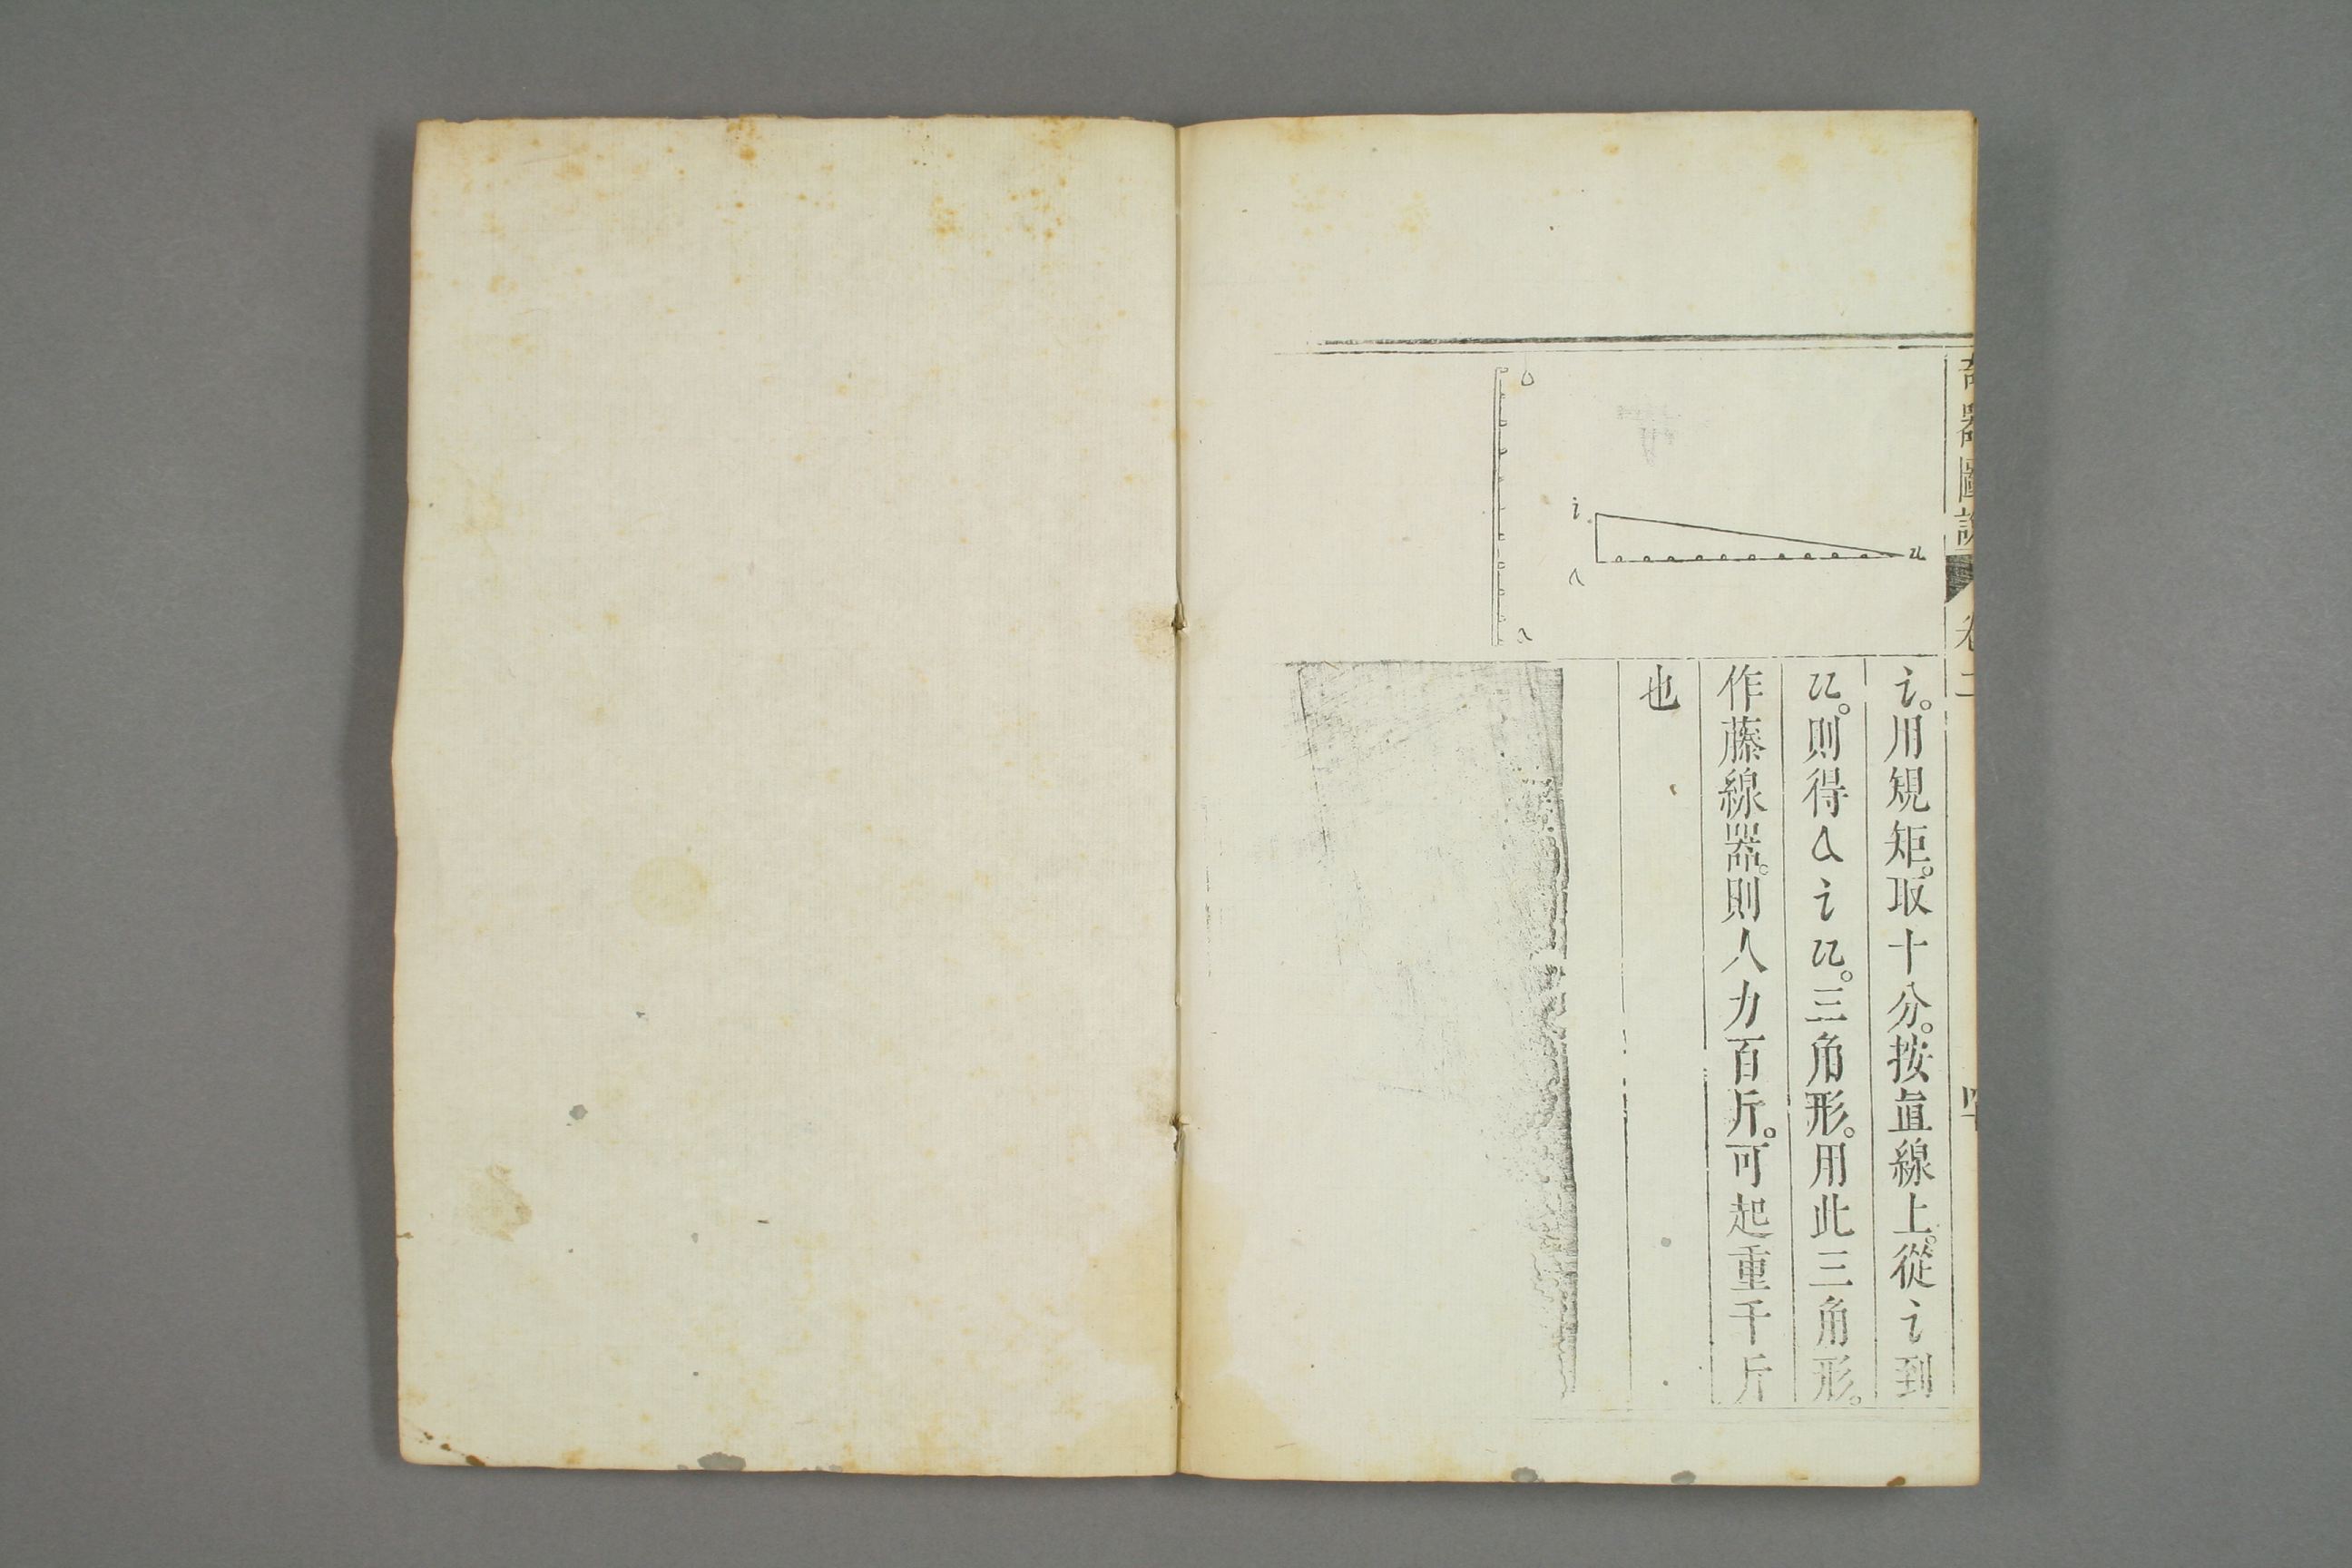 奇器圖說 卷二 四十
i
a
u
b
a
i。用規矩。取十分。按直線上。從i到
u。則得a i u。三角形。用此三角形。
作藤線器。則人力百斤。可起重千斤
也